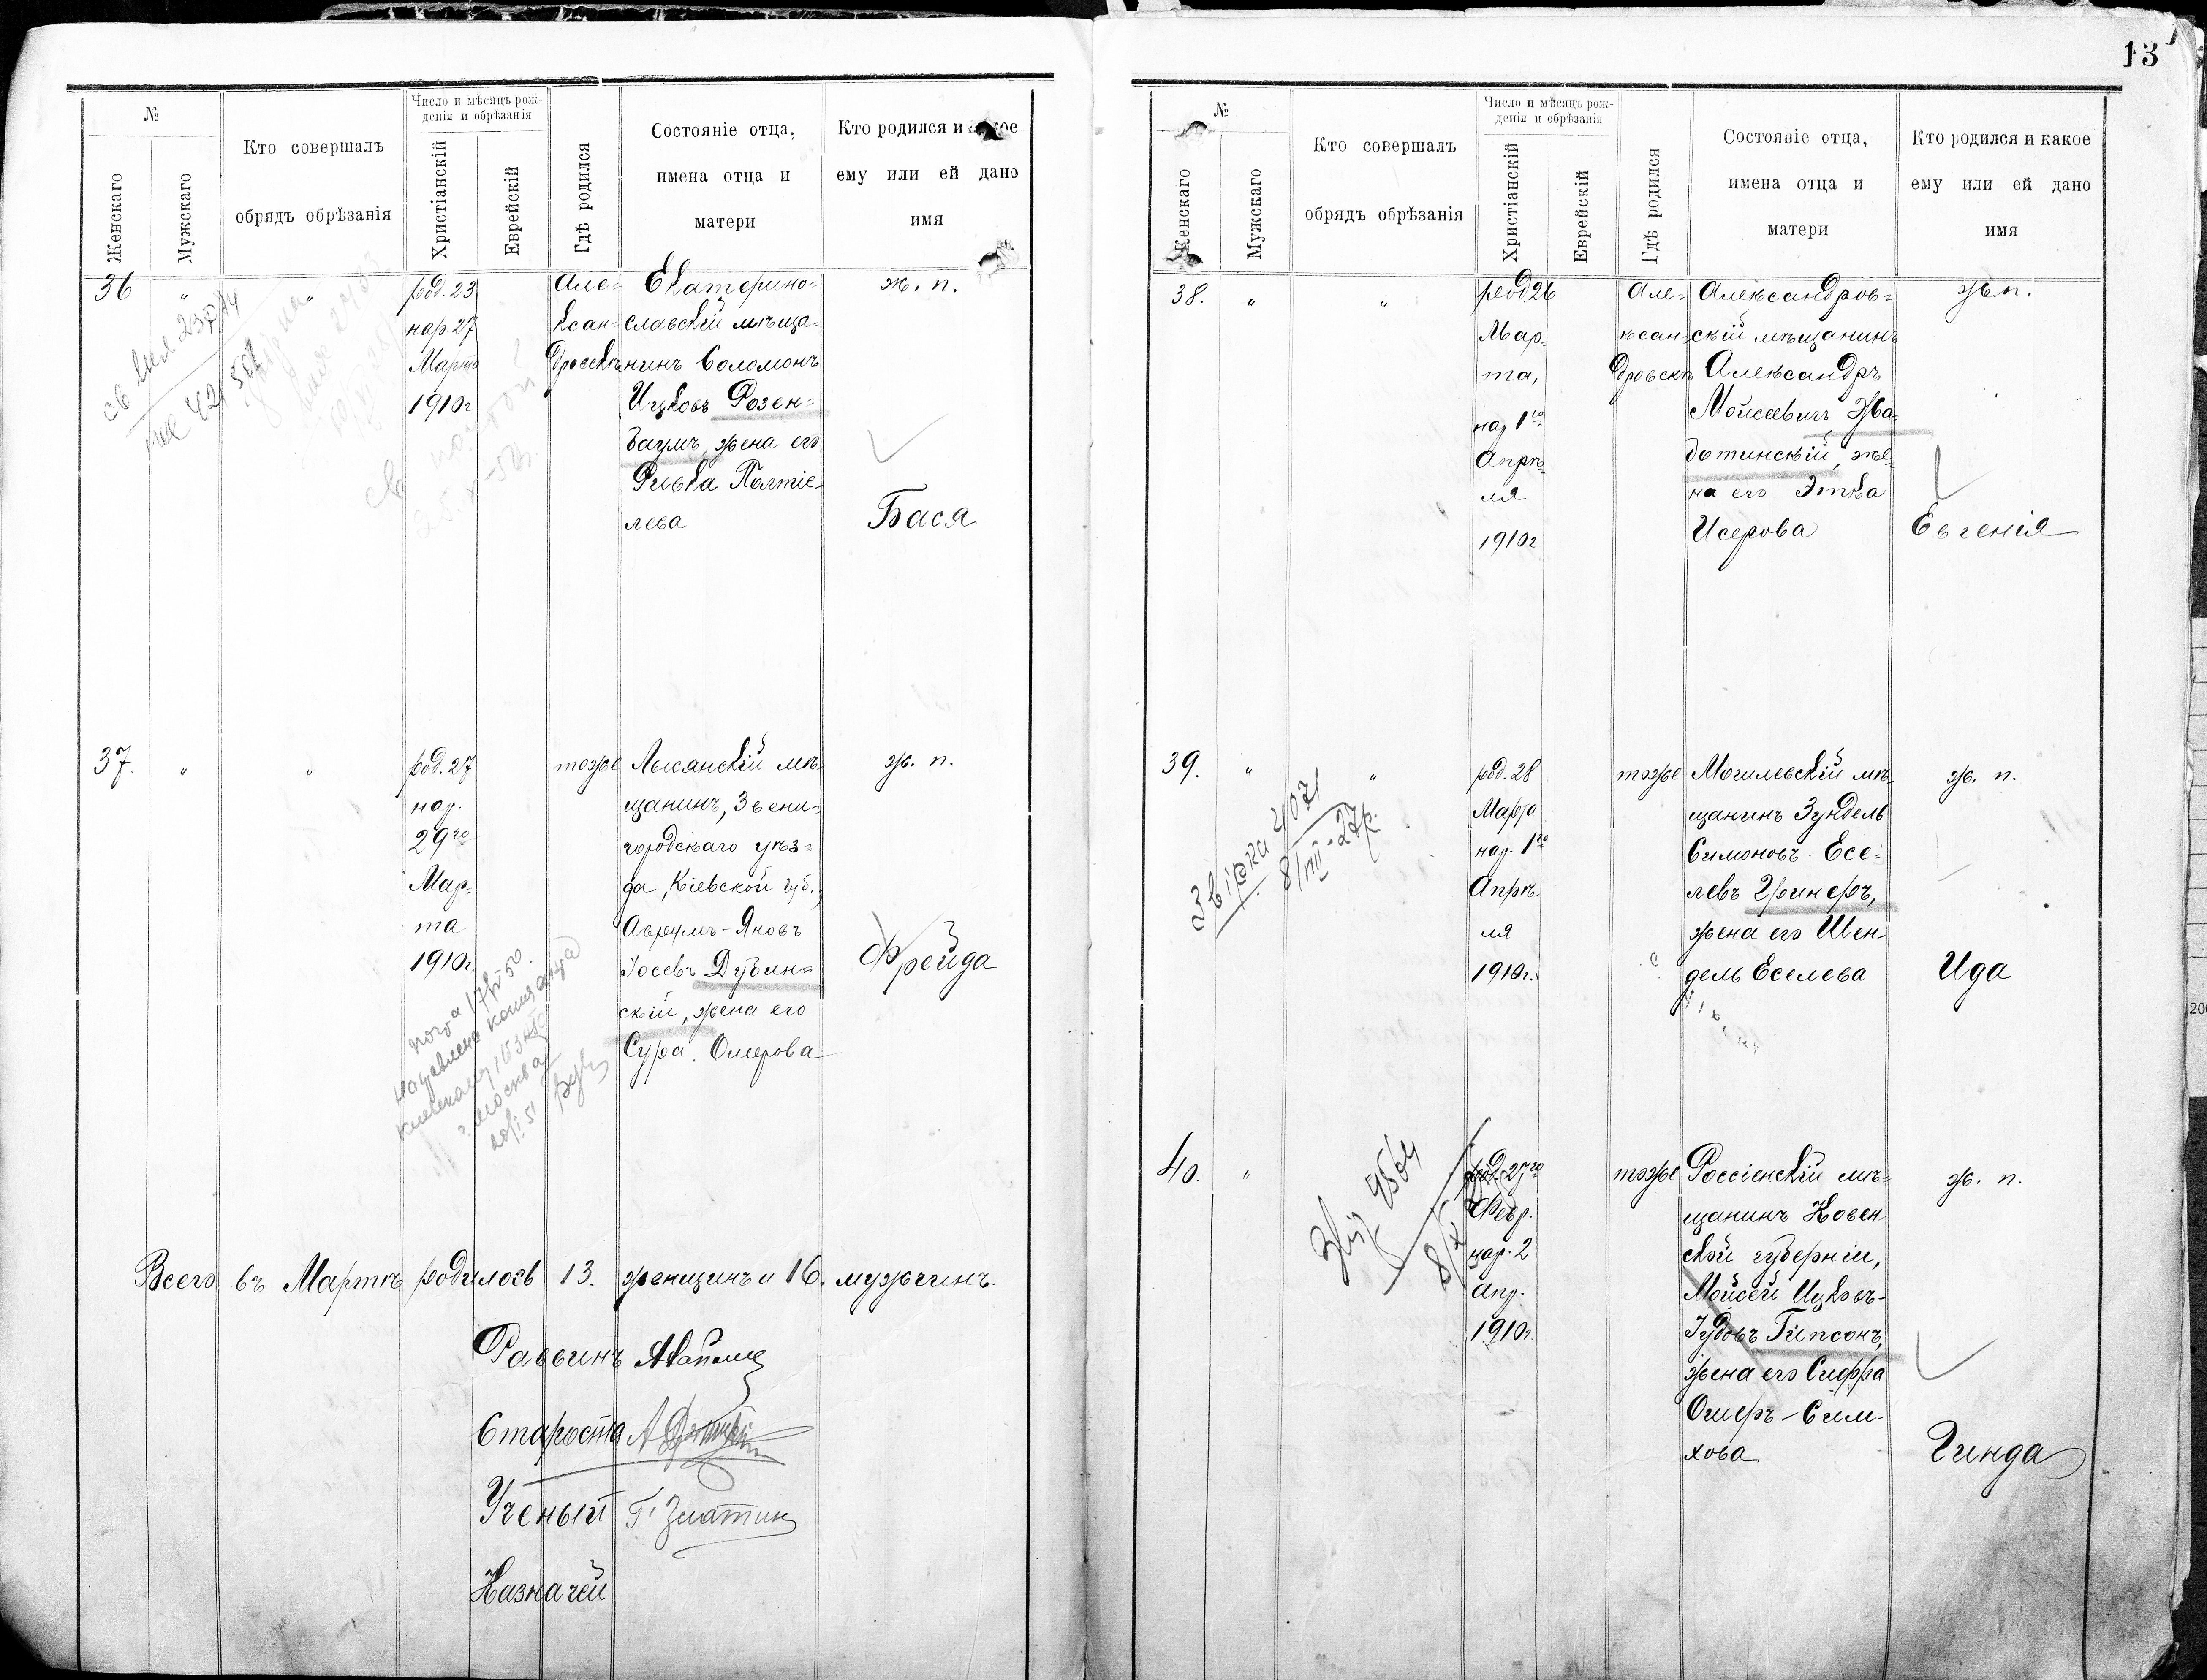 13
№
Женскаго
Мужскаго
Кто совершалъ
обрядъ обрѣзанія
Число и мѣсяцъ рож-
денія и обрѣзанія
Христіанскій
Еврейскій
Гдѣ родился
Состояніе отца,
имена отца и
матери
Кто родился и
ему или ей дано
имя
36 " "
род. 23
нар. 27
Марта
1910г
Але-
ксан-
дровскъ
Екатерино-
славскій мѣща-
нинъ Соломонъ
Ицковъ Розен-
баумъ, жена его
Ривка Палтіе-
лева
ж. п.
Бася
37. " "
род. 27
нар.
29го
Мар-
та
1910г.
тоже
Лысянскій мѣ-
щанинъ, Звени-
городскаго уѣз-
да, Кіевской губ.,
Аврумъ-Яковъ
Іосевъ Дубин-
скій, жена его
Сура Ошерова
ж. п.
Фрейда
Всего въ Мартѣ родилось 13. женщинъ и 16. мужчинъ.
Раввинъ
Староста
Ученый Г. Златин
Казначей
№
Женскаго
Мужскаго
Кто совершалъ
обрядъ обрѣзанія
Число и мѣсяцъ рож-
денія и обрѣзанія
Христіанскій
Еврейскій
Гдѣ родился
Состояніе отца,
имена отца и
матери
Кто родился и какое
ему или ей дано
имя
38. " "
род. 26
Мар-
та,
нар 1го
Апрѣ-
ля
1910г
Але-
ксан-
дровскъ
Александров-
скій мѣщанинъ
Александръ
Мойсеевичъ Жа-
ботинскій, же-
на его Этка
Исерова
ж. п.
Евгенія
39. " "
род. 28
Марта
нар. 1го
Апрѣ-
ля
1910г.
тоже
Могилевскій мѣ-
щанинъ Зундель
Симоновъ-Есе-
левъ Гринеръ,
жена его Шен-
дель Еселева
ж. п.
Ида
Звірка 4071
8/VIII-27р.
40. "
род. 27го
Февр.
нар. 2
Апр.
1910г.
тоже
Россіенскій мѣ-
щанинъ Ковен
ской губерніи,
Мойсей Ицковъ-
Іудовъ Гипсонъ,
жена его Сифра
Ошеръ-Сим-
хова
ж. п.
Гинда